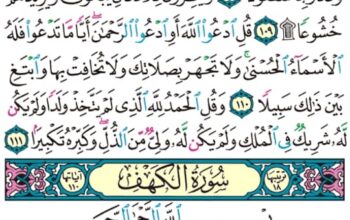 خُشُوعًا ۩ ١٠٩ قُلِ ٱدْعُوا۟ ٱللَّهَ أَوِ ٱدْعُوا۟ ٱلرَّحْمَٰنَ ۖ أَيًّا مَّا تَدْعُوا۟ فَلَهُ
ٱلْأَسْمَآءُ ٱلْحُسْنَىٰ ۚ وَلَا تَجْهَرْ بِصَلَاتِكَ وَلَا تُخَافِتْ بِهَا وَٱبْتَغِ
بَيْنَ ذَٰلِكَ سَبِيلًا ١١٠ وَقُلِ ٱلْحَمْدُ لِلَّهِ ٱلَّذِى لَمْ يَتَّخِذْ وَلَدًا وَلَمْ يَكُن
لَّهُۥ شَرِيكٌ فِى ٱلْمُلْكِ وَلَمْ يَكُن لَّهُۥ وَلِىٌّ مِّنَ ٱلذُّلِّ ۖ وَكَبِّرْهُ تَكْبِيرًۢا ١١١
ترتيبها ١٨ سُورَةُ الكَهْفِ آياتها ١١٠